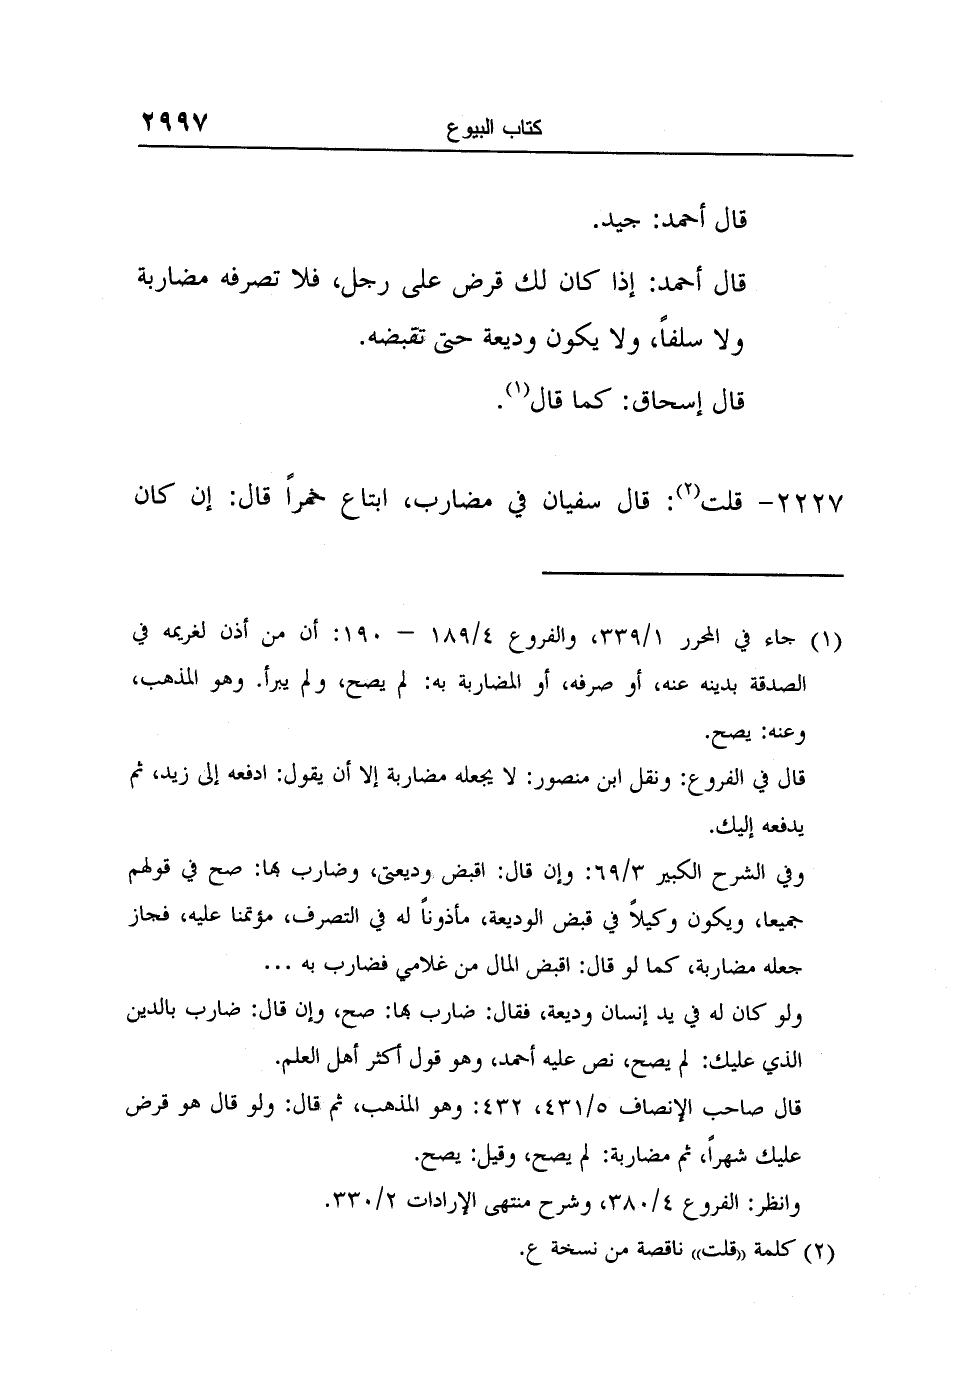 كتاب البيوع ٢٩٩٧
قال أحمد: جيد.
قال أحمد: إذا كان لك قرض على رجل، فلا تصرفه مضاربة
ولا سلفاً، ولا يكون وديعة حتى تقبضه.
قال إسحاق: كما قال(١).
٢٢٢٧- قلت(٢): قال سفيان في مضارب، ابتاع خمراً قال: إن كان
(١) جاء في المحرر ٣٣٩/١، والفروع ١٨٩/٤ – ١٩٠: أن من أذن لغريمه في
الصدقة بدينه عنه، أو صرفه، أو المضاربة به: لم يصح، ولم يبرأ. وهو المذهب،
وعنه: يصح.
قال في الفروع: ونقل ابن منصور: لا يجعله مضاربة إلا أن يقول: ادفعه إلى زيد، ثم
يدفعه إليك.
وفي الشرح الكبير ٦٩/٣: وإن قال: اقبض وديعتي، وضارب بها: صح في قولهم
جميعا، ويكون وكيلاً في قبض الوديعة، مأذوناً له في التصرف، مؤتمنا عليه، فجاز
جعله مضاربة، كما لو قال: اقبض المال من غلامي فضارب به ...
ولو كان له في يد إنسان وديعة، فقال: ضارب بها: صح، وإن قال: ضارب بالدين
الذي عليك: لم يصح، نص عليه أحمد، وهو قول أكثر أهل العلم.
قال صاحب الإنصاف ٤٣١/٥، ٤٣٢: وهو المذهب، ثم قال: ولو قال هو قرض
عليك شهراً، ثم مضاربة: لم يصح، وقيل: يصح.
وانظر: الفروع ٣٨٠/٤، وشرح منتهى الإرادات ٣٣٠/٢.
(٢) كلمة ((قلت)) ناقصة من نسخة ع.